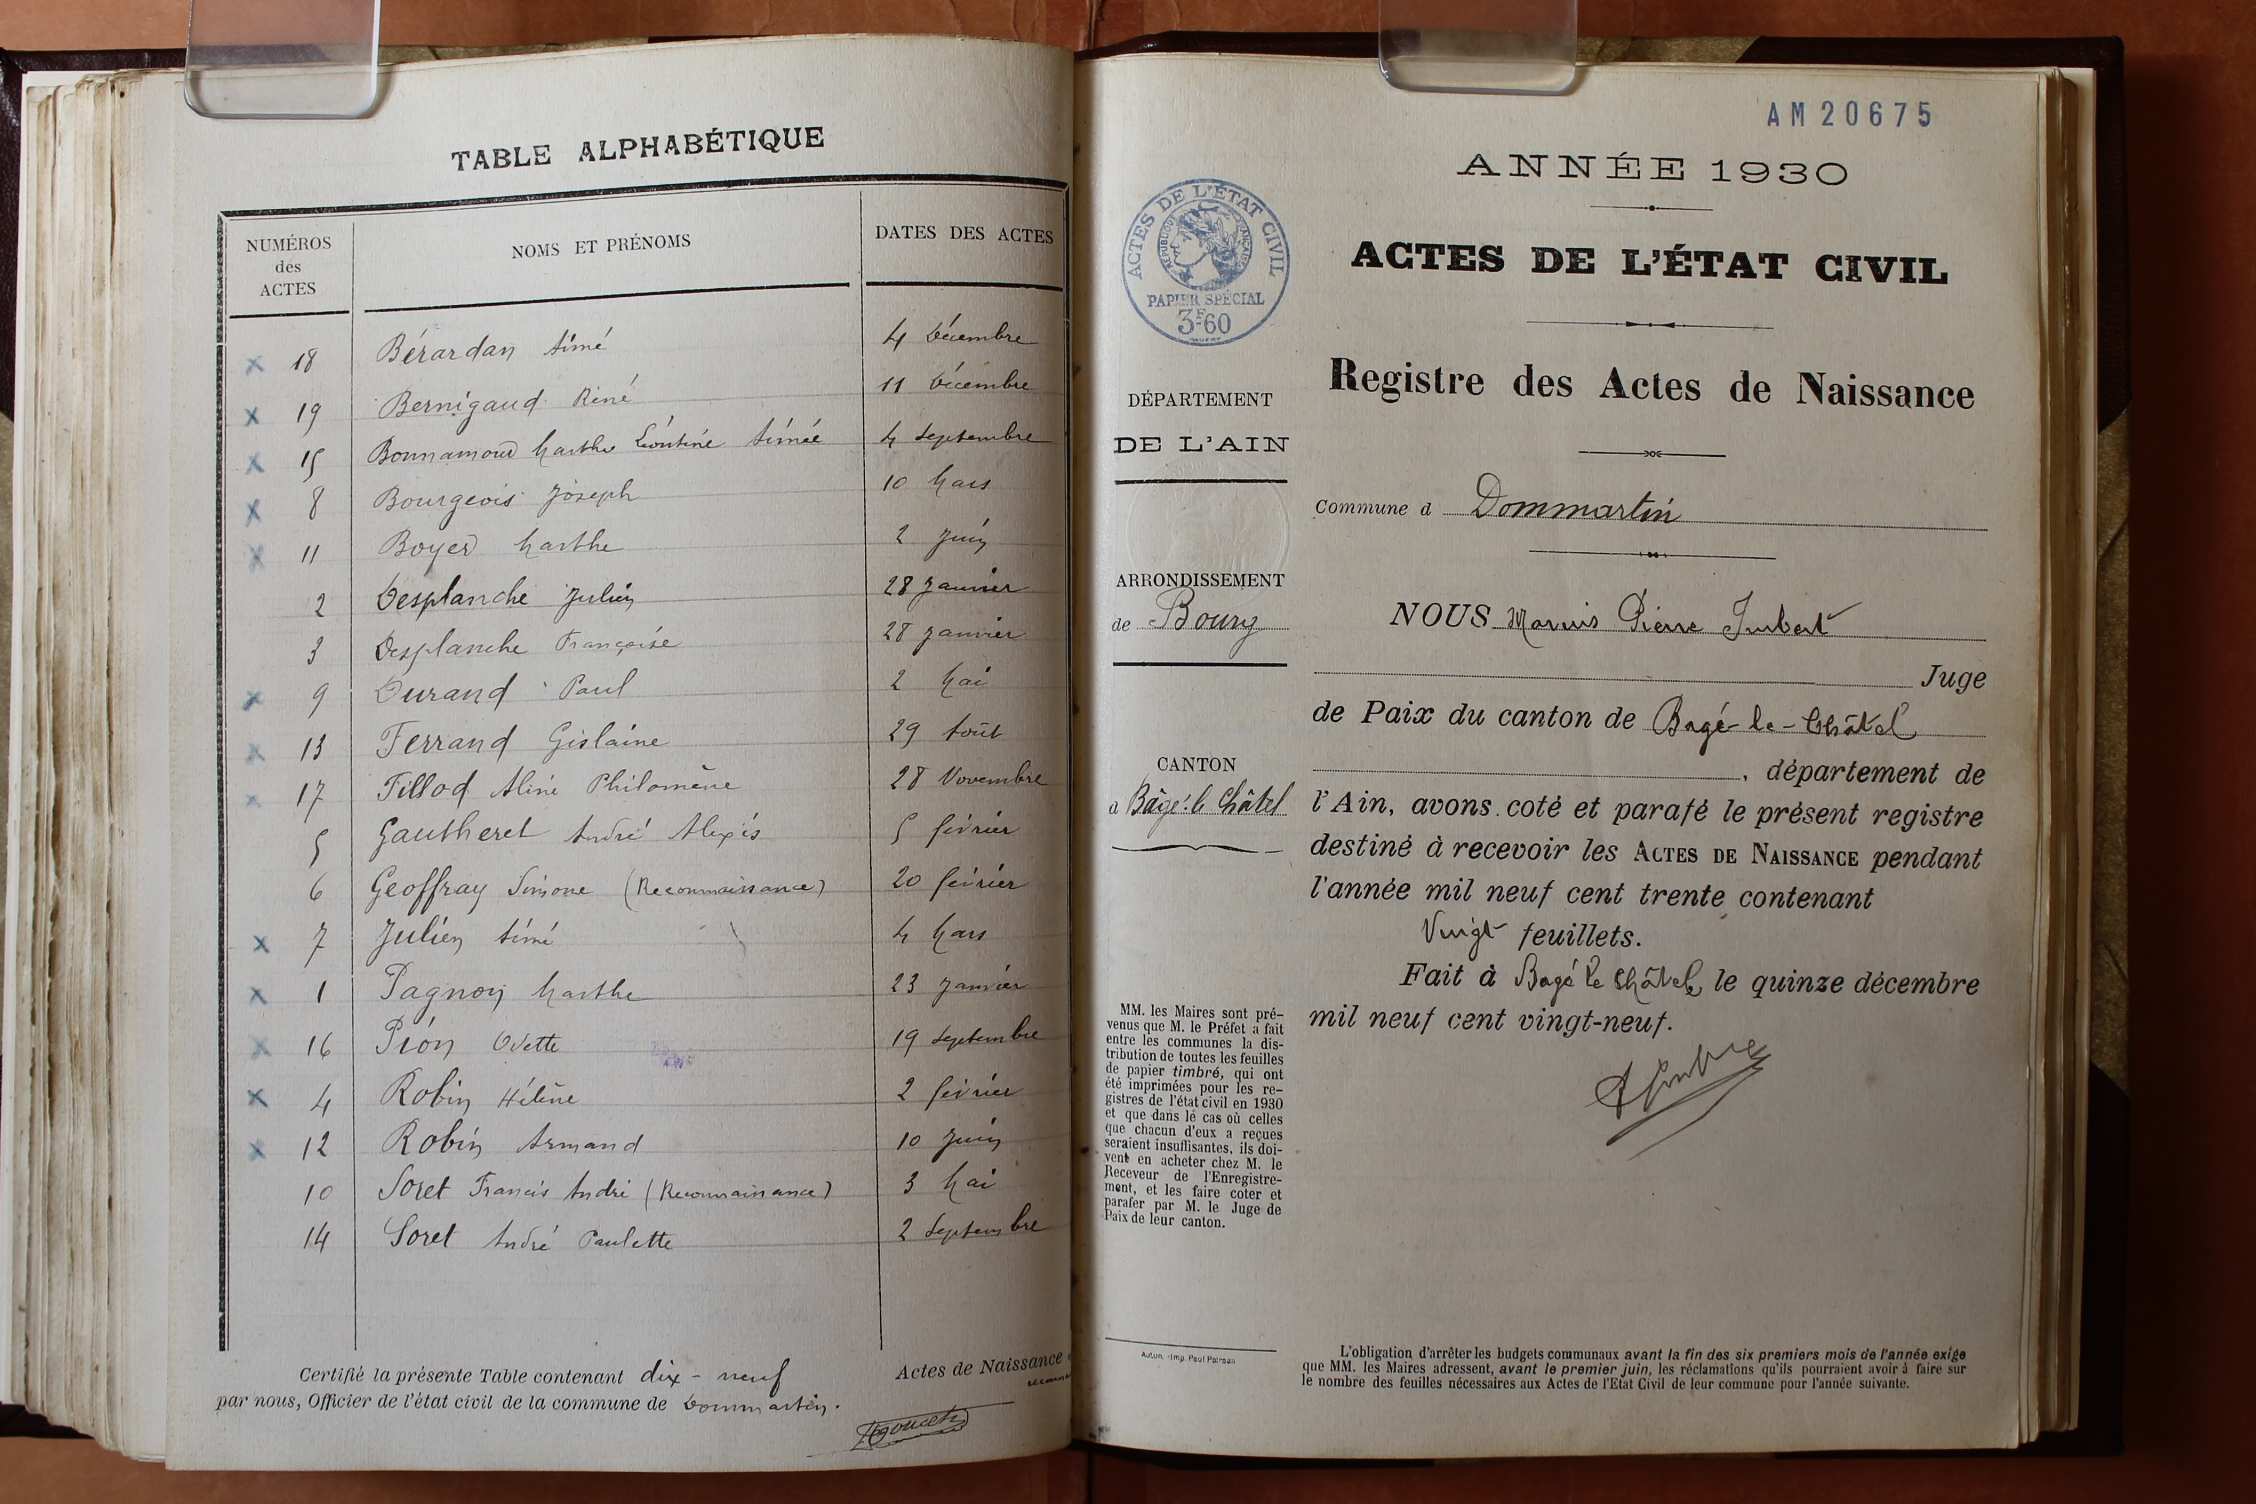 TABLE ALPHABÉTIQUE
NUMÉROS
des
ACTES
NOMS ET PRÉNOMS
DATES DES ACTES
18 Bérardan Aimé 4 Décembre
19 Bernigaud Réné 11 Décembre
15 Bonnamour Marthe Léontine Aimée 4 Septembre
8 Bourgeois Joseph 10 Mars
11 Boyer Marthe 2 Juin
2 Desplanche Julien 28 Janvier
3 Desplanche Françoise 28 Janvier
9 Durand Paul 2 Mai
13 Ferrand Gislaine 29 Août
17 Fillod Aline Philomène 28 Novembre
5 Gautheret André Alexis 5 février
6 Geoffray Simone (Reconnaissance) 20 février
7 Julien Aimé 4 Mars
1 Pagnon Marthe 23 Janvier
16 Pion Odette 19 Septembre
4 Robin Hélène 2 février
12 Robin Armand 10 Juin
10 Soret Francis André (Reconnaissance) 3 Mai
14 Soret André Paulette 2 Septembre
Certifié la présente Table contenant dix-neuf Actes de Naissance
par nous, Officier de l'état civil de la commune de Dommartin.
AM20675
ANNÉE 1930
ACTES DE L'ÉTAT CIVIL
PAPIER SPÉCIAL
3F60
ACTES DE L'ÉTAT CIVIL
Registre des Actes de Naissance
DÉPARTEMENT
DE L'AIN
ARRONDISSEMENT
de Bourg
CANTON
d Bâgé-le Châtel
MM. les Maires sont pré-
venus que M. le Préfet a fait
entre les communes la dis-
tribution de toutes les feuilles
de papier timbré, qui ont
été imprimées pour les re-
gistres de l'état civil en 1930
et que dans le cas où celles
que chacun d'eux a reçues
seraient insuffisantes, ils doi-
vent en acheter chez M. le
Receveur de l'Enregistre-
ment, et les faire coter et
parafer par M. le Juge de
Paix de leur canton.
Commune d Dommartin
NOUS Marius Pierre Imbert
Juge
de Paix du canton de Bagé-le-Châtel
, département de
l'Ain, avons coté et parafé le présent registre
destiné à recevoir les ACTES DE NAISSANCE pendant
l'année mil neuf cent trente contenant
Vingt feuillets.
Fait à Bagé le Châtel, le quinze décembre
mil neuf cent vingt-neuf.
Autun. - Imp. Paul
L'obligation d'arrêter les budgets communaux avant la fin des six premiers mois de l'année exige
que MM. les Maires adressent, avant le premier juin, les réclamations qu'ils pourraient avoir à faire sur
le nombre des feuilles nécessaires aux Actes de l'Etat Civil de leur commune pour l'année suivante.